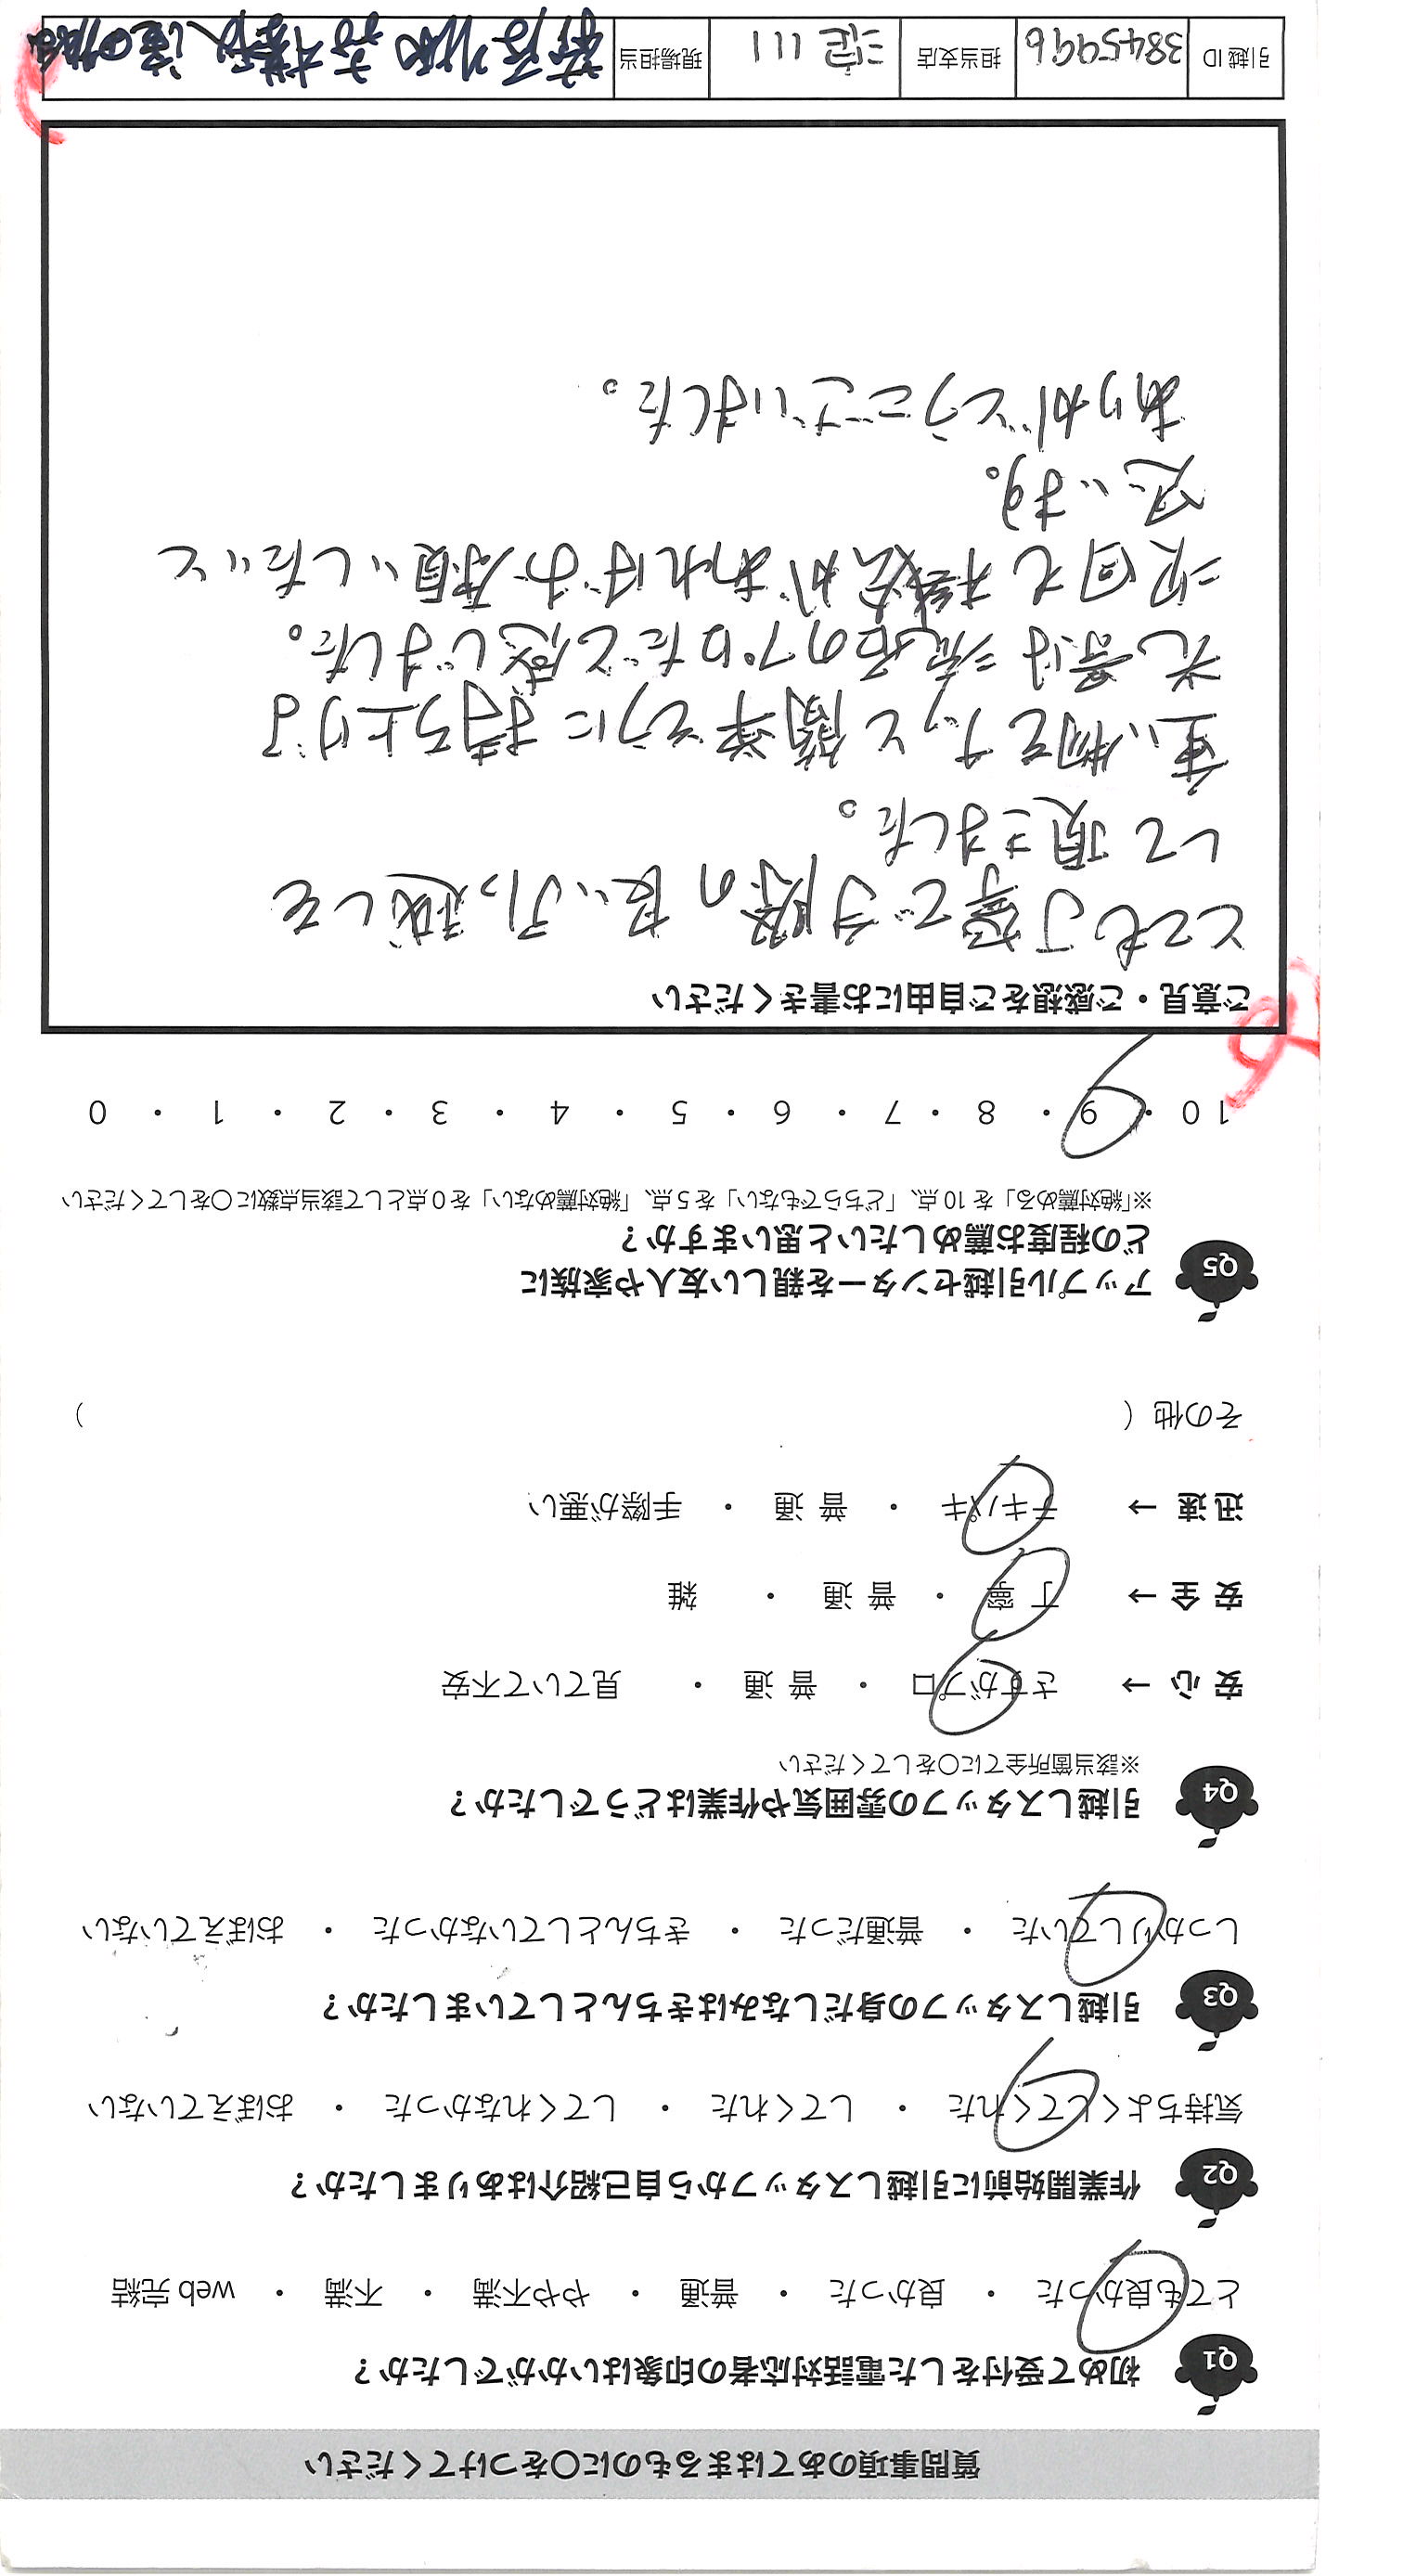 質問事項のあてはまるものに〇をつけてください
Q1 初めて受付をした電話対応者の印象はいかがでしたか？
とても良かった ・ 良かった ・ 普通 ・ やや不満 ・ 不満 ・ web 完結
Q2 作業開始前に引越しスタッフから自己紹介はありましたか？
気持ちよくしてくれた ・ してくれた ・ してくれなかった ・ おぼえていない
Q3 引越しスタッフの身だしなみはきちんとしていましたか？
しっかりしていた ・ 普通だった ・ きちんとしていなかった ・ おぼえていない
Q4 引越しスタッフの雰囲気や作業はどうでしたか？
※該当箇所全てに〇をしてください
安 心 → さすがプロ ・ 普 通 ・ 見ていて不安
安 全 → 丁 寧 ・ 普 通 ・ 雑
迅 速 → テキパキ ・ 普 通 ・ 手際が悪い
その他 ( )
Q5 アップル引越センターを親しい友人や家族に
どの程度お薦めしたいと思いますか？
※「絶対薦める」を 10 点、「どちらでもない」を 5 点、「絶対薦めない」を 0 点として該当点数に〇をしてください
10 ・ 9 ・ 8 ・ 7 ・ 6 ・ 5 ・ 4 ・ 3 ・ 2 ・ 1 ・ 0
ご意見・ご感想をご自由にお書きください
とても丁寧で手際の良い引っ越しを
して頂きました。
重い物をもっと簡単そうに持ち上げる
光景は流石のプロだと感じました。
次回も機会があればお願いしたいと
思います。
ありがとうございました。
引越 ID 3845996 担当支店 淀川 現場担当